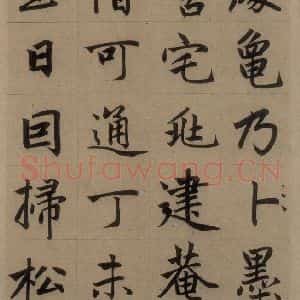 龜乃卜墨
宅兆建菴
可通丁未
日回掃松
Shufawang.CN